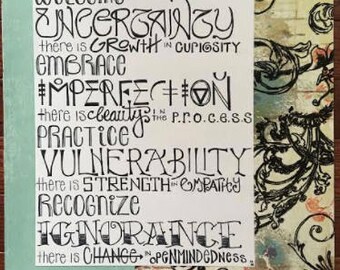 WELCOME
UNCERTAINTY
there is GROWTH IN CURIOSITY
EMBRACE
IMPERFECTION
there is beauty IN THE P.R.O.C.E.S.S
PRACTICE
VULNERABILITY
there is STRENGTH in EMPATHY
RECOGNIZE
IGNORANCE
there is CHANGE IN OPENMINDEDNESS.